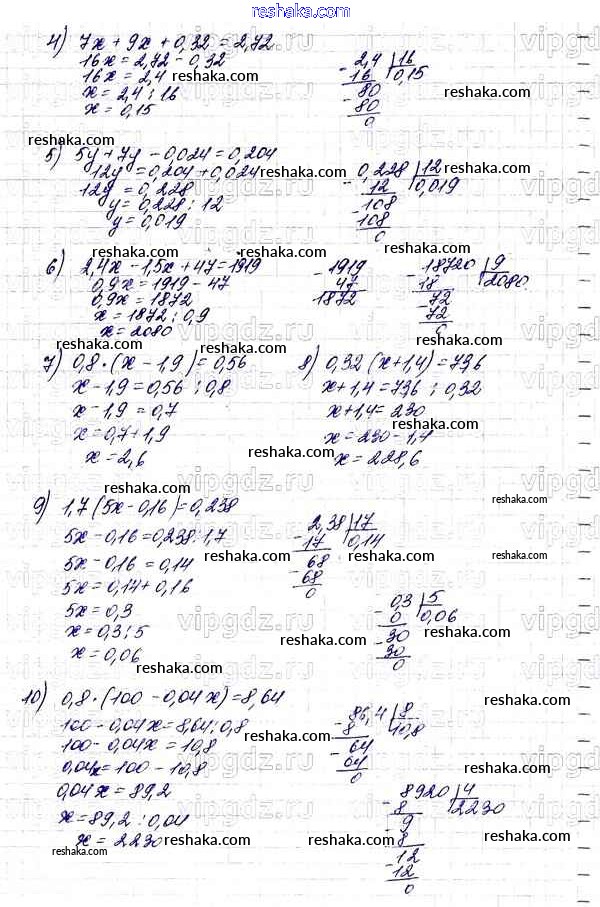 reshaka.com
4) 7x + 9x + 0,32 = 2,72
16x = 2,72 - 0,32
16x = 2,4 reshaka.com
x = 2,4 : 16
x = 0,15
2,4 | 16
- 16 0,15
80
- 80
0
reshaka.com
5) 5y + 7y - 0,024 = 0,204
12y = 0,204 + 0,024 reshaka.com
12y = 0,228
y = 0,228 : 12
y = 0,019
reshaka.com
0,228 | 12
- 12 0,019
108
- 108
0
reshaka.com reshaka.com
6) 2,4x - 1,5x + 47 = 1919
0,9x = 1919 - 47
0,9x = 1872
x = 1872 : 0,9
x = 2080
- 1919
47
1872
- 18720 | 9
18 2080
72
72
0
reshaka.com
7) 0,8 · (x - 1,9) = 0,56
x - 1,9 = 0,56 : 0,8
x - 1,9 = 0,7
x = 0,7 + 1,9
x = 2,6
reshaka.com
8) 0,32 (x + 1,4) = 73,6
x + 1,4 = 73,6 : 0,32
x + 1,4 = 230
reshaka.com
x = 230 - 1,4
x = 228,6
reshaka.com
reshaka.com
reshaka.com
9) 1,7 (5x - 0,16) = 0,238
5x - 0,16 = 0,238 : 1,7
5x - 0,16 = 0,14
5x = 0,14 + 0,16
5x = 0,3
x = 0,3 : 5
x = 0,06
reshaka.com
2,38 | 17
- 17 0,14
68
- 68
0
reshaka.com
reshaka.com
0,3 | 5
- 0 0,06
- 30
30
0
reshaka.com
reshaka.com
reshaka.com
10) 0,8 · (100 - 0,04x) = 8,64
100 - 0,04x = 8,64 : 0,8
100 - 0,04x = 10,8
0,04x = 100 - 10,8
0,04x = 89,2
x = 89,2 : 0,04
x = 2230 reshaka.com
reshaka.com
reshaka.com
86,4 | 8
- 8 10,8
- 64
64
0
reshaka.com
- 8920 | 4
8 2230
9
- 8
12
- 12
0
reshaka.com
reshaka.com